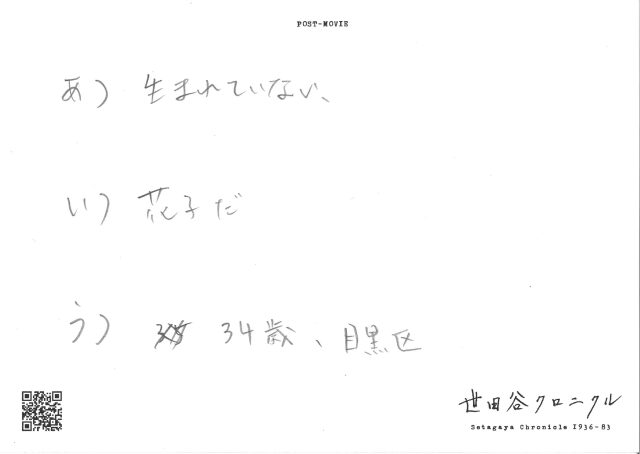 POST-MOVIE
あ) 生まれていない、
い) 花子だ
う) 34歳、目黒区
世田谷クロニクル
Setagaya Chronicle 1936-83